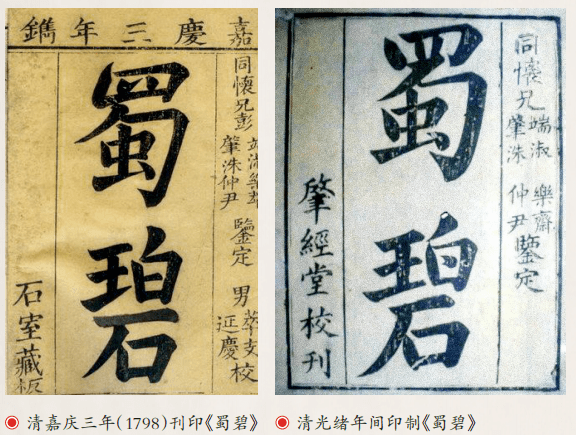 嘉慶三年鐫
同懷兄彭
端淑
肇洙仲尹
鑒定
男
延慶
校
蜀碧
石室藏板
同懷兄
端淑
肇洙
樂齋
仲尹
鑒定
蜀碧
肇經堂校刊
清嘉庆三年(1798)刊印《蜀碧》
清光绪年间印制《蜀碧》